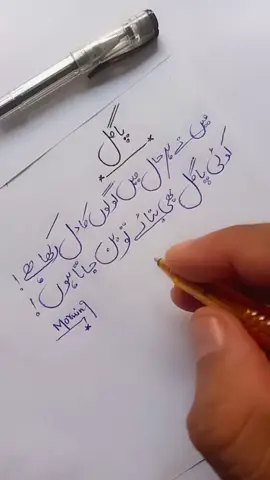 پاگل
میں نے ہر حال میں لوگوں کا دل رکھا ہے!
کوئی پاگل بھی بنائے تو بن جاتا ہوں!